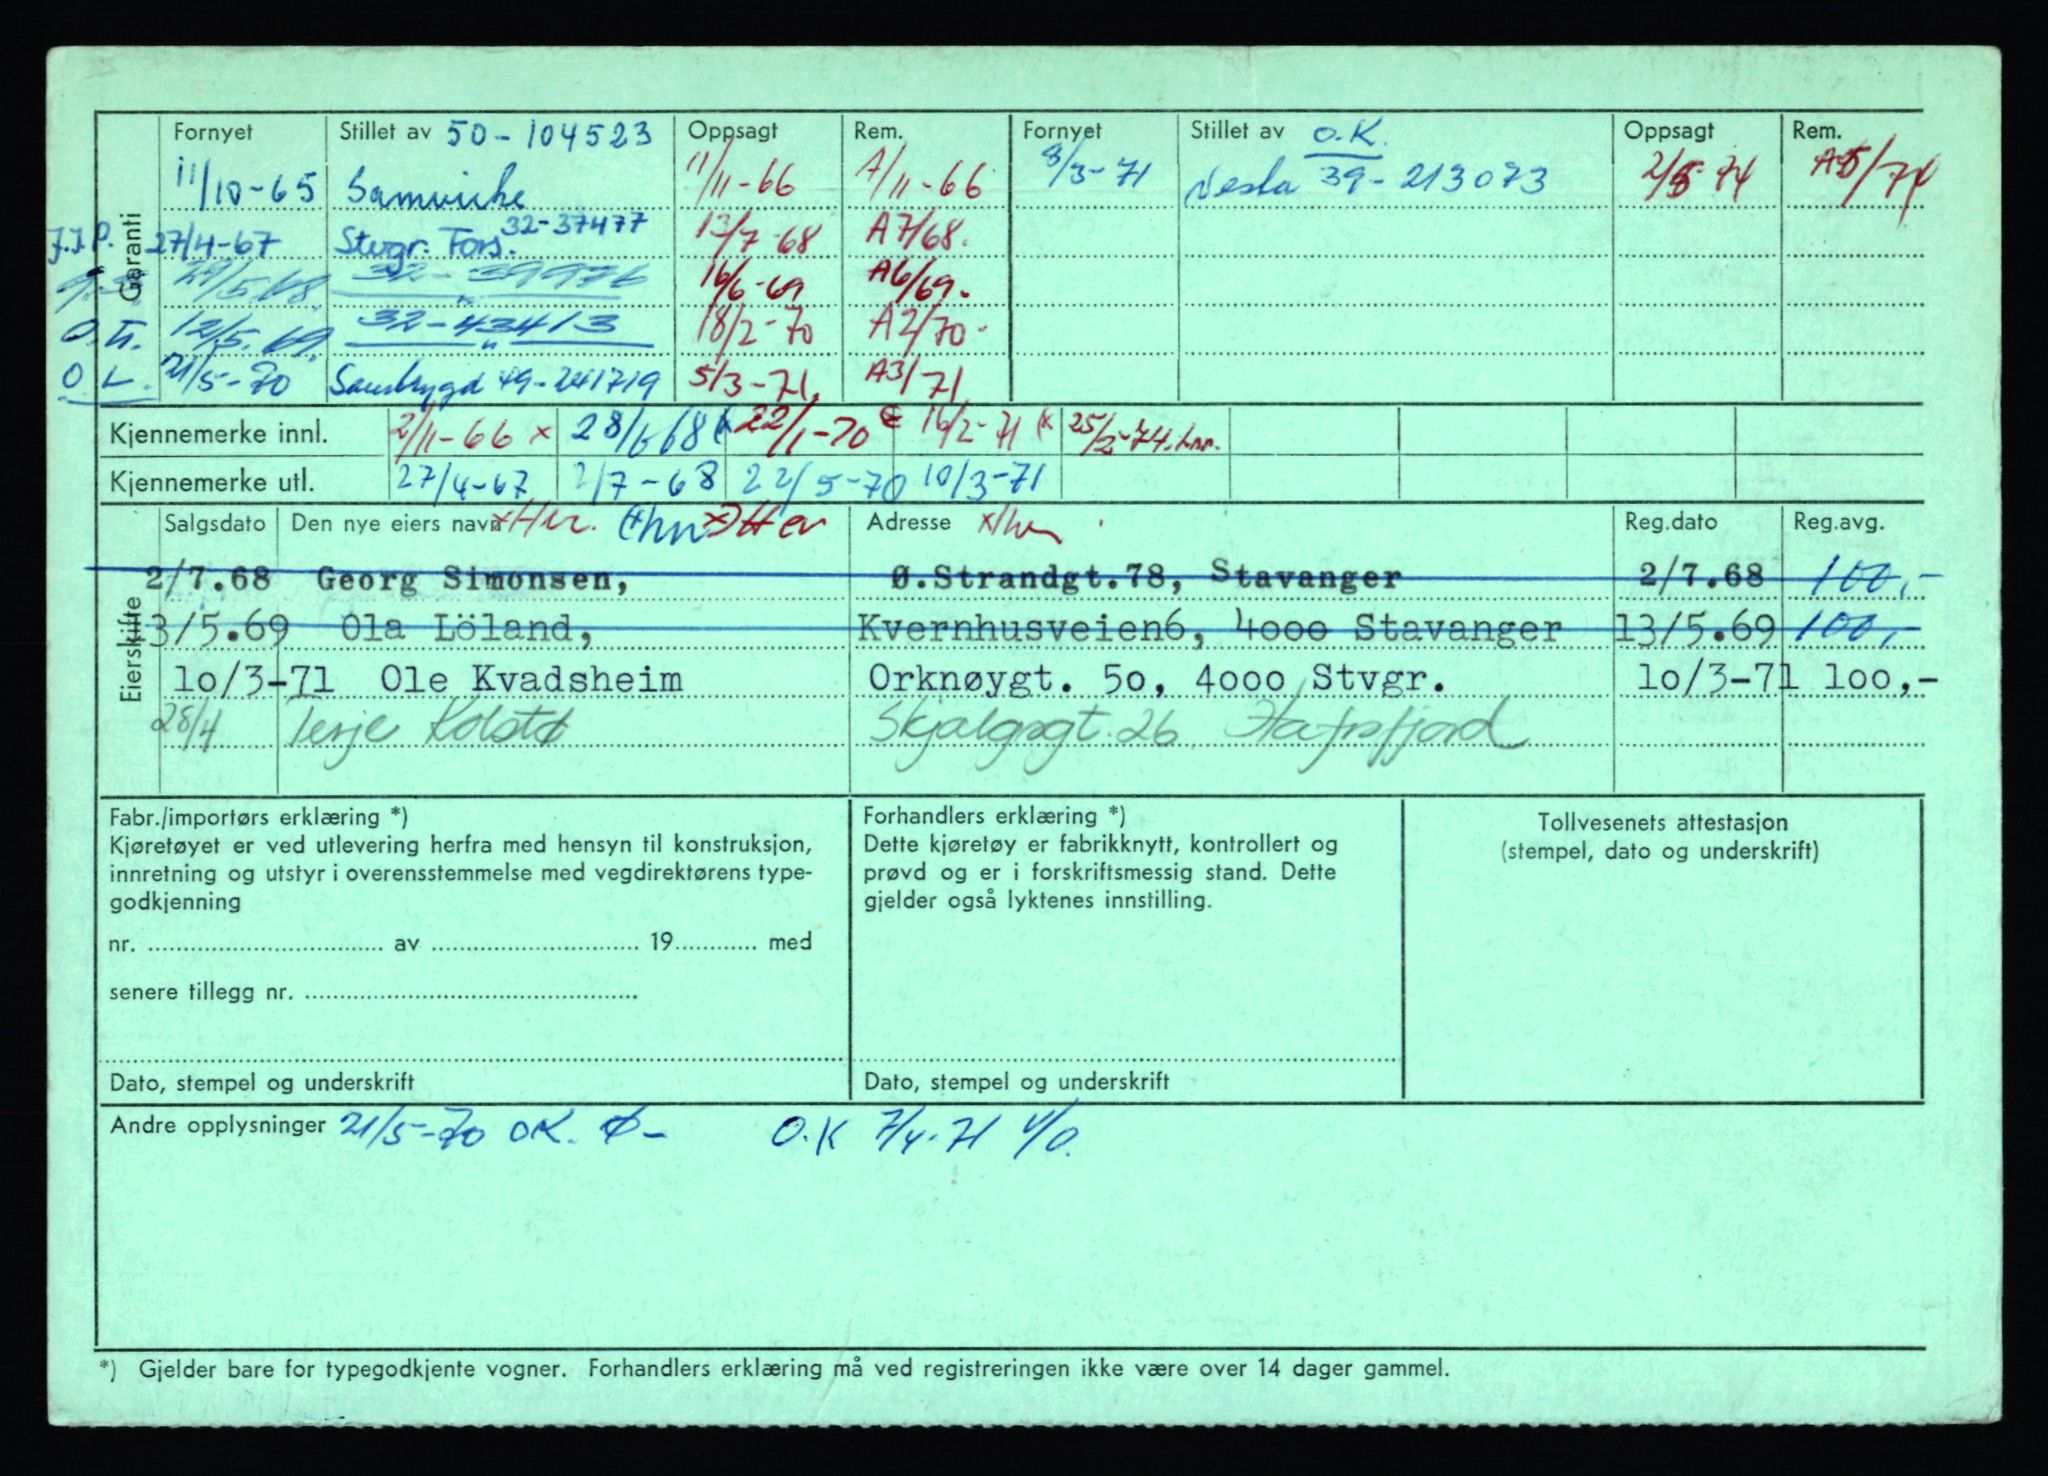 Fornyet Stillet av 50-104523 Oppsagt Rem. Fornyet Stillet av O.K. Oppsagt Rem.
11/10-65 Samvirke 11/11-66 A/11-66 8/3-71 Vesta 39-213073 2/5-74 A5/74
Garanti
J.J.P. 27/4-67 Stvgr. Fors. 32-37477 13/7-68 A7/68.
29/5.68 32-39976 16/6-69 A6/69.
O.L. 12/5.69. 32-43413 18/2-70 A2/70-
O L. 21/5-70 Sambygd 49-241719 5/3-71. A3/71
Kjennemerke innl. 2/11-66 x 28/6 68 (x 22/1-70 16/2-71 (x 25/2-74.
Kjennemerke utl. 27/4-67 2/7-68 22/5-70 10/3-71
Salgsdato Den nye eiers navn Adresse Reg.dato Reg.avg.
Eierskifte
2/7.68 Georg Simonsen, Ø.Strandgt.78, Stavanger 2/7.68 100,-
13/5.69 Ola Löland, Kvernhusveien6, 4000 Stavanger 13/5.69 100,-
10/3-71 Ole Kvadsheim Orknøygt. 50, 4000 Stvgr. 10/3-71 100,-
28/4 Terje Kolstø Skjalgsgt. 26 Hafrsfjord
Fabr./importørs erklæring *)
Kjøretøyet er ved utlevering herfra med hensyn til konstruksjon,
innretning og utstyr i overensstemmelse med vegdirektørens type-
godkjenning
nr. .......... av .......... 19.......... med
senere tillegg nr. ..........
Dato, stempel og underskrift
Forhandlers erklæring *)
Dette kjøretøy er fabrikknytt, kontrollert og
prøvd og er i forskriftsmessig stand. Dette
gjelder også lyktenes innstilling.
Dato, stempel og underskrift
Tollvesenets attestasjon
(stempel, dato og underskrift)
Andre opplysninger 21/5-70 OK. Ø- O.K 7/4-71
*) Gjelder bare for typegodkjente vogner. Forhandlers erklæring må ved registreringen ikke være over 14 dager gammel.